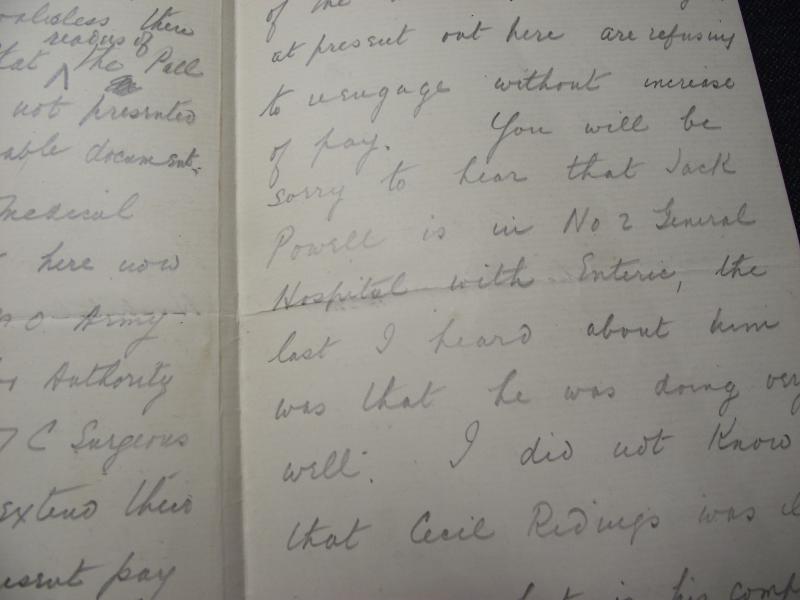 there
readers of
the Pall
not presented
able document.
Medical
here now
Army
Authority
C Surgeons
extend their
pay
of the
at present out here are refusing
to reengage without increase
of pay. You will be
sorry to hear that Jack
Powell is in No 2 General
Hospital with Enteric, the
last I heard about him
was that he was doing very
well. I did not Know
that Cecil Ridings was
is his